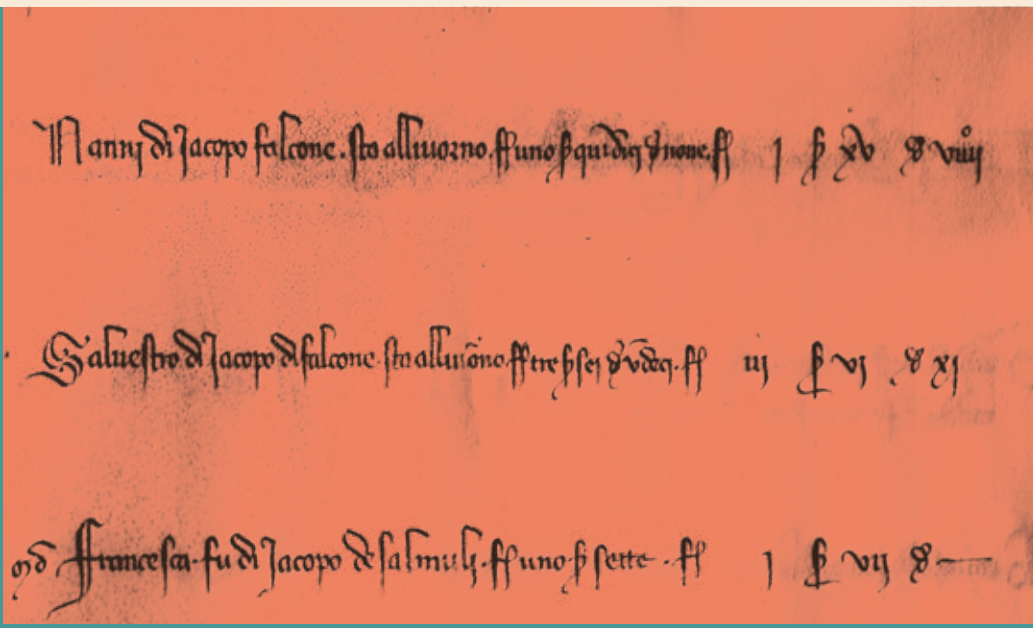 Nanni di Jacopo falcone . sta alliuorno . ff uno ß quĩdici đ noue . ff j ß xv đ viiij
Saluestro di Jacopo di falcone sta alliuorno . ff tre ß sei đ vndici . ff iij ß vj đ xj
mᵃ Francesca . fu di Jacopo de salmuli . ff uno ß sette . ff j ß vij đ —